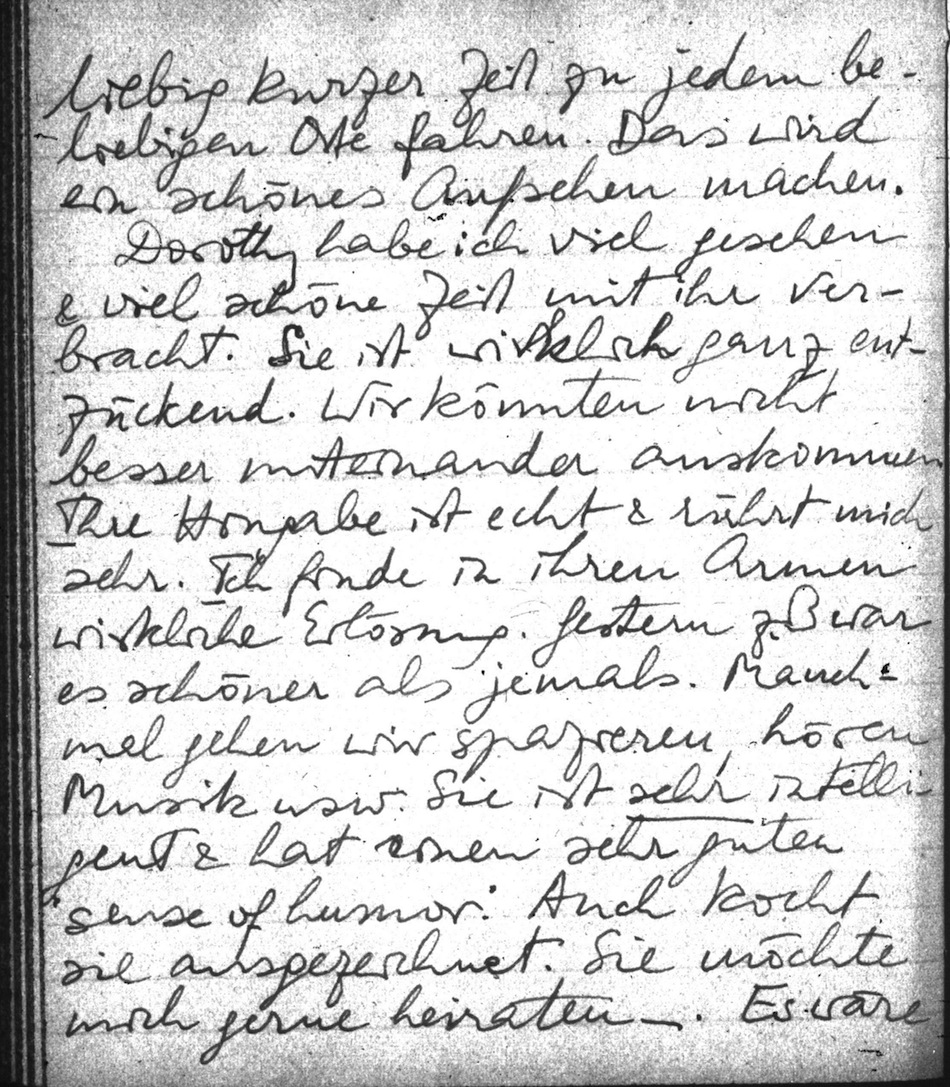 liebig kurzer Zeit zu jedem be-
liebigen Orte fahren. Das wird
ein schönes Aufsehen machen.
Dorothy habe ich viel gesehen
& viel schöne Zeit mit ihr ver-
bracht. Sie ist wirklich ganz ent-
zückend. Wir könnten nicht
besser miteinander auskommen
Ihre Hingabe ist echt & rührt mich
sehr. Ich finde in ihren Armen
wirkliche Erlösung. Gestern z.B war
es schöner als jemals. Manch-
mal gehen wir spazieren, hören
Musik usw. Sie ist sehr intelli-
gent & hat einen sehr guten
'sense of humor.' Auch kocht
sie ausgezeichnet. Sie möchte
mich gerne heiraten—. Es wäre